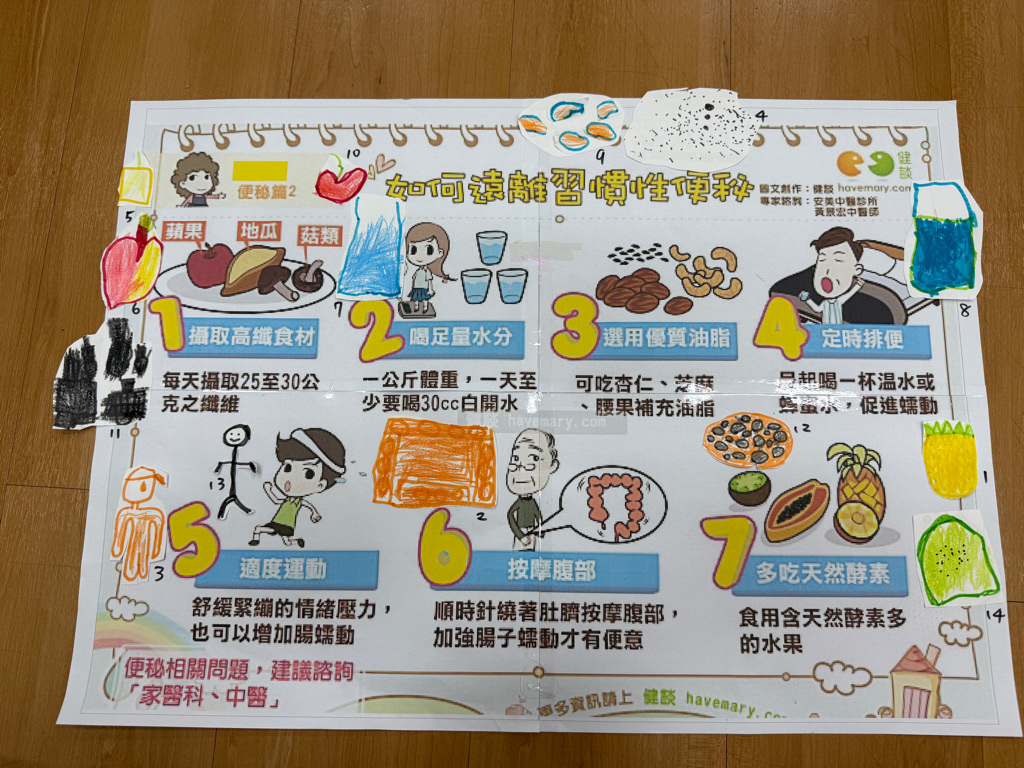 便秘篇2
如何遠離習慣性便秘
健談
圖文創作：健談 havemary.com
專家諮詢：安美中醫診所
黃景宏中醫師
蘋果
地瓜
菇類
1 攝取高纖食材
每天攝取25至30公
克之纖維
2 喝足量水分
一公斤體重，一天至
少要喝30cc白開水
3 選用優質油脂
可吃杏仁、芝麻
、腰果補充油脂
4 定時排便
早起喝一杯温水或
蜂蜜水，促進蠕動
havemary.com
5 適度運動
舒緩緊繃的情緒壓力，
也可以增加腸蠕動
6 按摩腹部
順時針繞著肚臍按摩腹部，
加強腸子蠕動才有便意
7 多吃天然酵素
食用含天然酵素多
的水果
便秘相關問題，建議諮詢
「家醫科、中醫」
更多資訊請上 健談 havemary.com
9
4
10
5
6
7
8
11
13
12
2
3
1
14